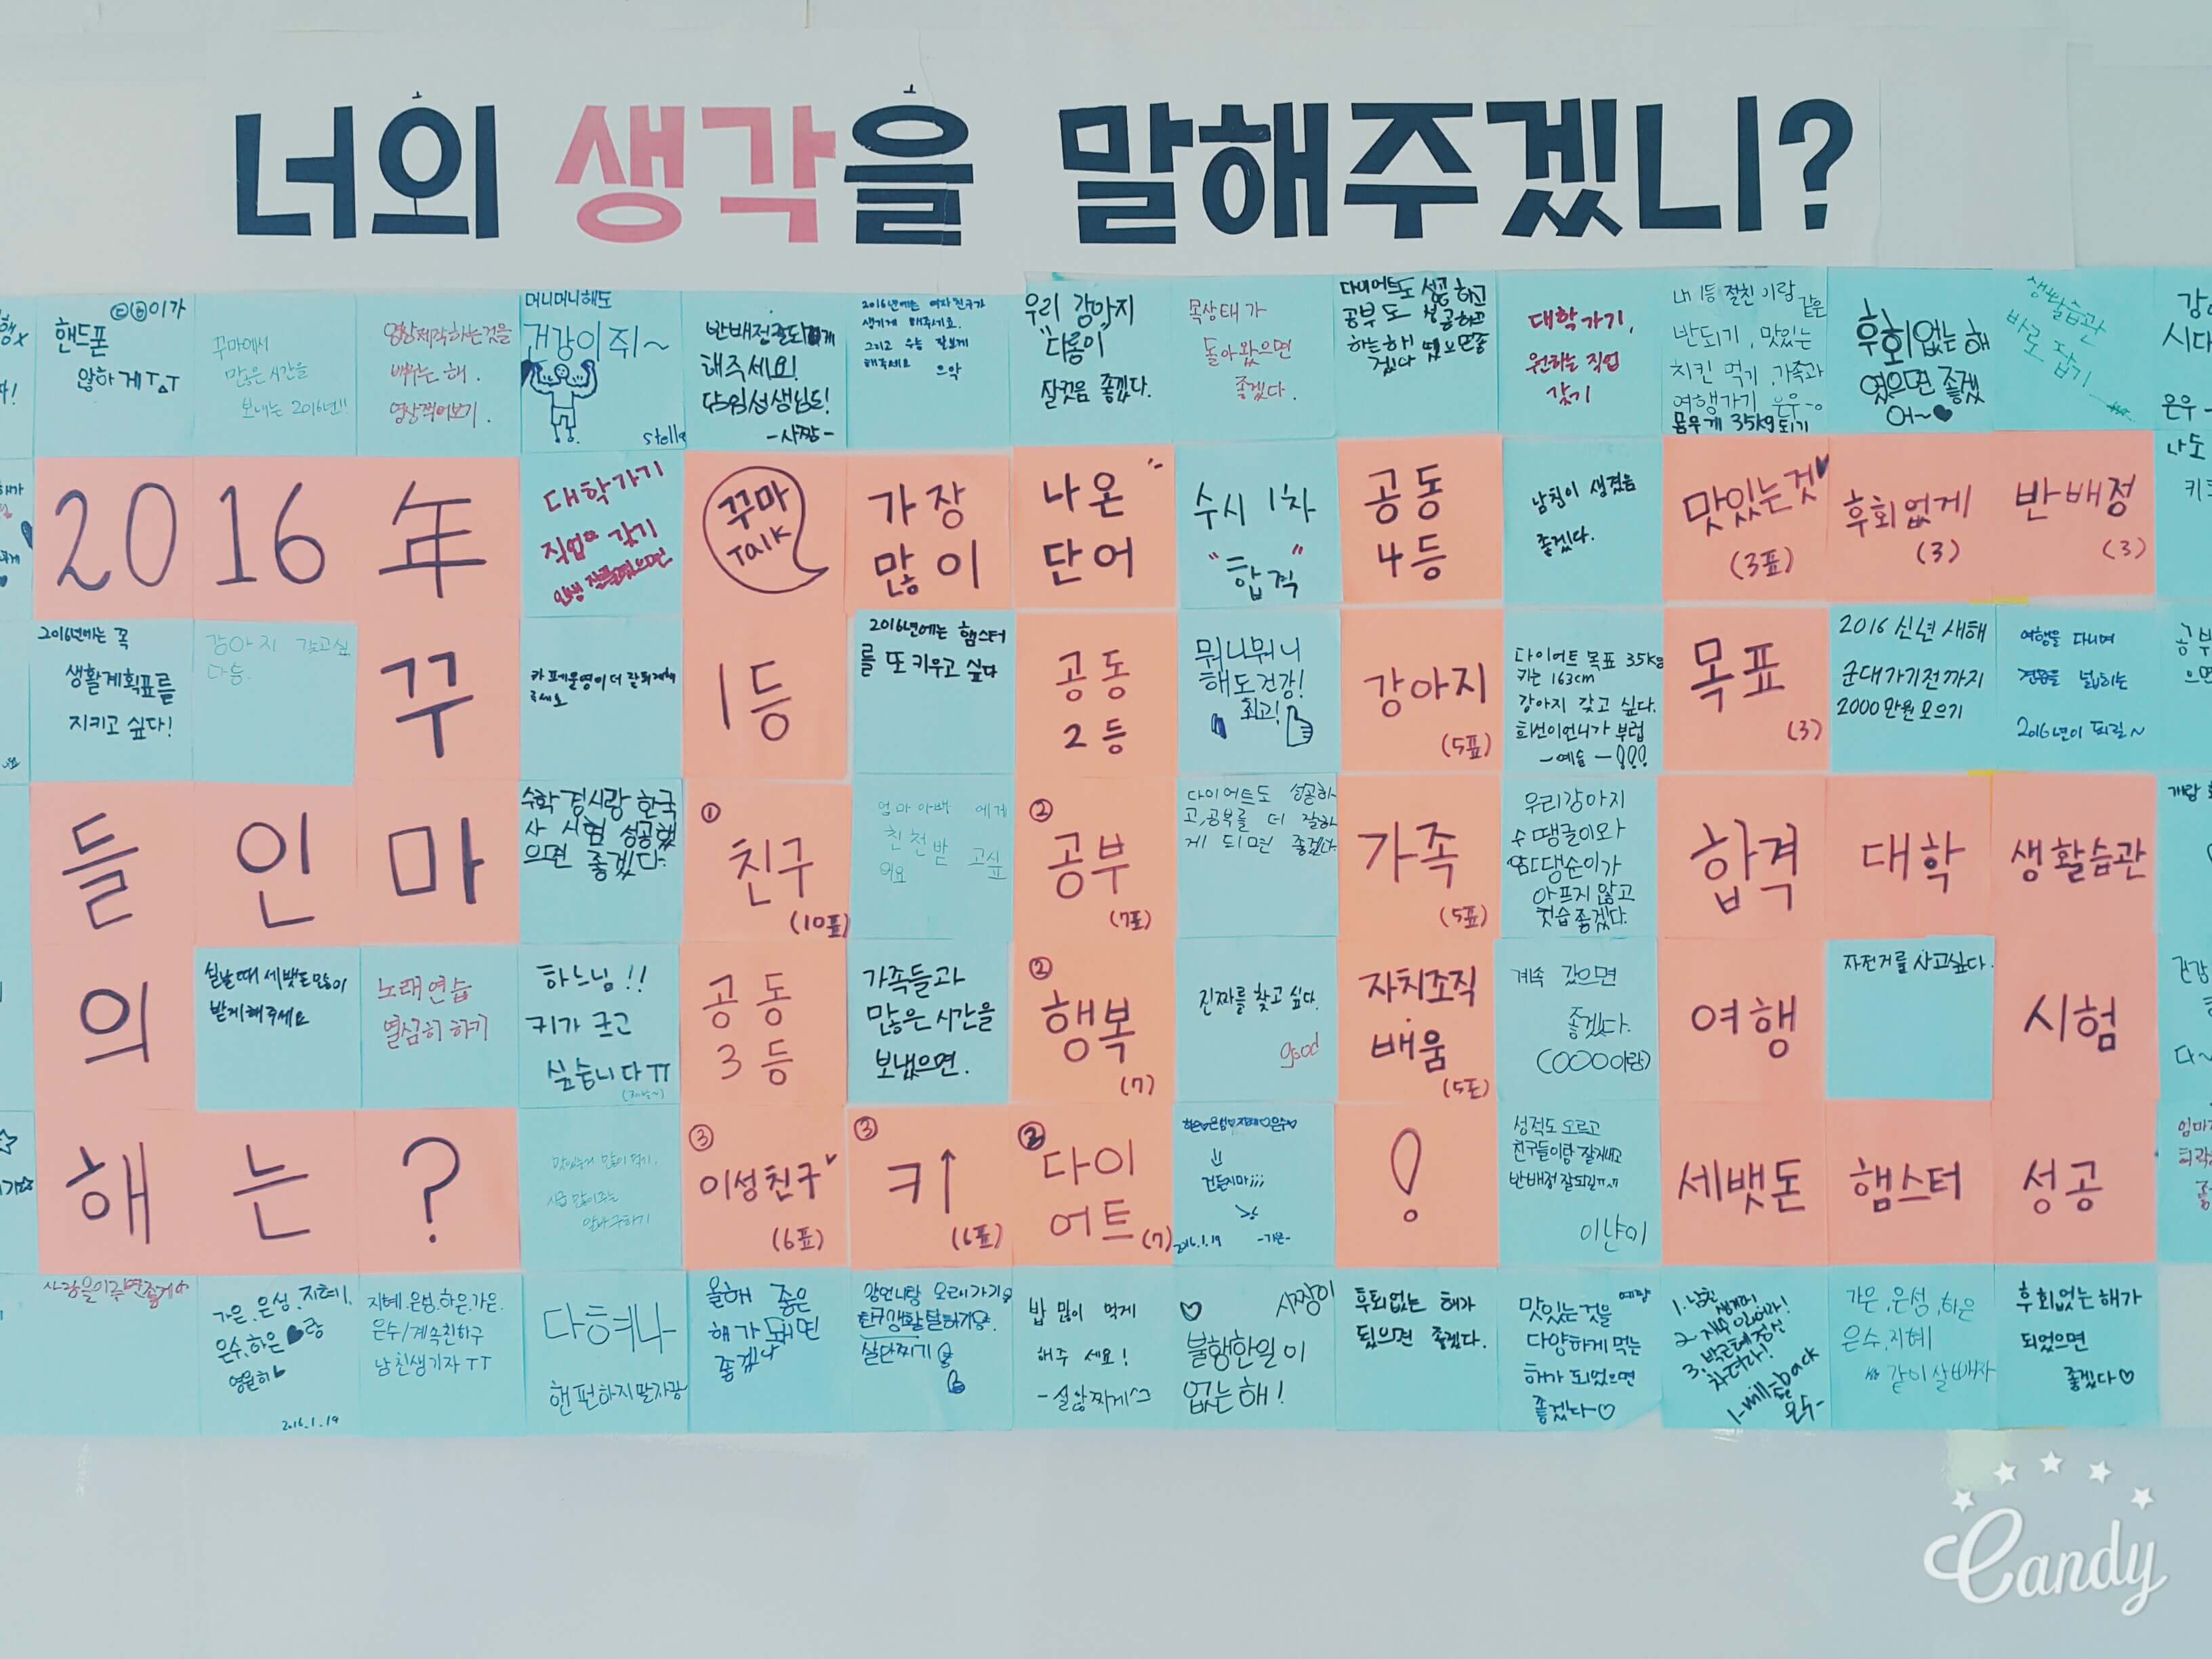 너의 생각을 말해주겠니?
ⓒⓑ이가
핸드폰
않하게 T^T
꾸마에서
많은 시간을
보내는 2016년!!
영상제작하는것을
배우는 해.
영상찍어보기.
머니머니해도
건강이쥐~
stella
반배정 잘되게
해주세요!
담임선생님도!
-사짱-
2016년에는 여자친구가
생기게 해주세요.
그리고 수능 잘보게
해주세요
으악
우리 강아지
"다롱이"
잘컷음 좋겠다.
목상태가
돌아왔으면
좋겠다.
다이어트도 성공하고
공부도 성공하고
하는해 됐으면좋
겠다
대학가기,
원하는 직업
갖기
내 1등 절친 이랑 같은
반되기, 맛있는
치킨 먹기, 가족과
여행가기
몸무게 35kg 되기
후회없는 해
였으면 좋겠
어~♥
생활습관
바로 잡기
2016年
대학가기
직업 갖기
꾸마
Talk
가장
많이
나온
단어
수시 1차
"합격"
공동
4등
남친이 생겼음
좋겠다.
맛있는것
(3표)
후회없게
(3)
반배정
(3)
2016년에는 꼭
생활계획표를
지키고 싶다!
강아지 갖고싶
다등
꾸
카페운영이 더 잘되게해
주세요
1등
2016년에는 햄스터
를 또 키우고 싶다
공동
2등
뭐니뭐니
해도건강!
최고!
강아지
(5표)
다이어트 목표 35kg
키는 163cm
강아지 갖고 싶다.
희선이언니가 부럽
-예슬-
목표
(3)
2016 신년 새해
군대가기전까지
2000만원 모으기
여행을 다니며
견문을 넓히는
2016년이 되길~
들 인 마
수학 경시랑 한국
사 시험 성공했
으면 좋겠다.
①
친구
(10표)
엄마 아빠 에게
친천받 고싶
어요
②
공부
(7표)
다이어트도 성공하
고, 공부를 더 잘하
게 되면 좋겠다.
가족
(5표)
우리강아지
수 땡글이와
암 댕순이가
아프지 않고
컷습좋겠다.
합격
대학
생활습관
의
설날때 세뱃돈많이
받게해주세요
노래연습
열심히 하기
하느님!!
키가 크고
싶습니다ㅠ
공동
3등
가족들과
많은 시간을
보냈으면.
②
행복
(7)
진짜를 찾고 싶다.
good
자치조직
배움
(5표)
계속 갔으면
좋겠다.
(OOO이랑)
여행
자전거를 사고싶다.
시험
해 는 ?
맛있는거 많이 먹기.
시급 많이주는
알바구하기
③
이성친구
(6표)
③
키↑
(6표)
②
다이
어트
(7)
⇓
건든지마;;;
2016.1.19 -가은-
!
성적도 오르고
친구들이랑 잘지내고
반배정 잘되길ㅠ.ㅠ
세뱃돈
햄스터
성공
가은.은성.지혜.
은수.하은♥랑
영원히
2016.1.19
지혜.은성.하은.가은.
은수/계속친하구
남친생기자 TT
다혜나
핸펀하지말자쫌
올해 좋은
해가 돼면
좋겠다
살단찌기
밥 많이 먹게
해주 세요!
-설않찌게ㅋ
♡ 사짱이
불행한일이
없는해!
후회없는 해가
됬으면 좋겠다.
맛있는것을
다양하게 먹는
해가 되었으면
좋겠다~♡
1. 남친
3. 박근혜정신
차려라!
가은.은성,하은
은수,지혜
같이살빼자
후회없는 해가
되었으면
좋겠다♡
Candy